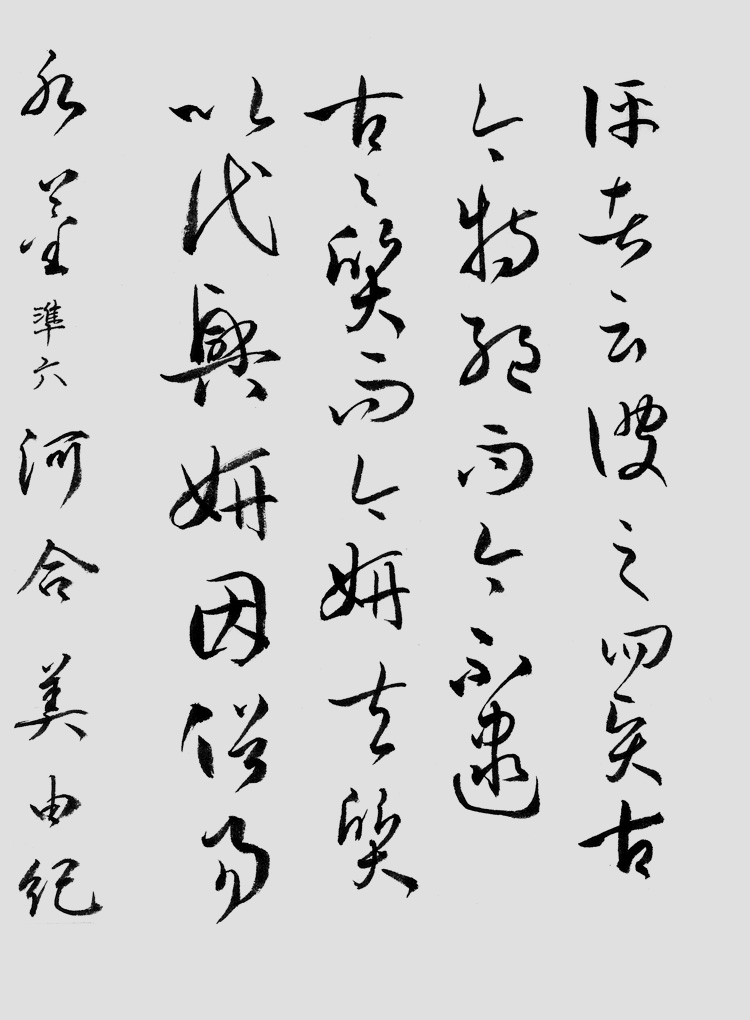 評者云彼之四賢古
今特絕而今不逮
古〻質而今妍夫質
以代興妍因俗易
準六 河合美由紀